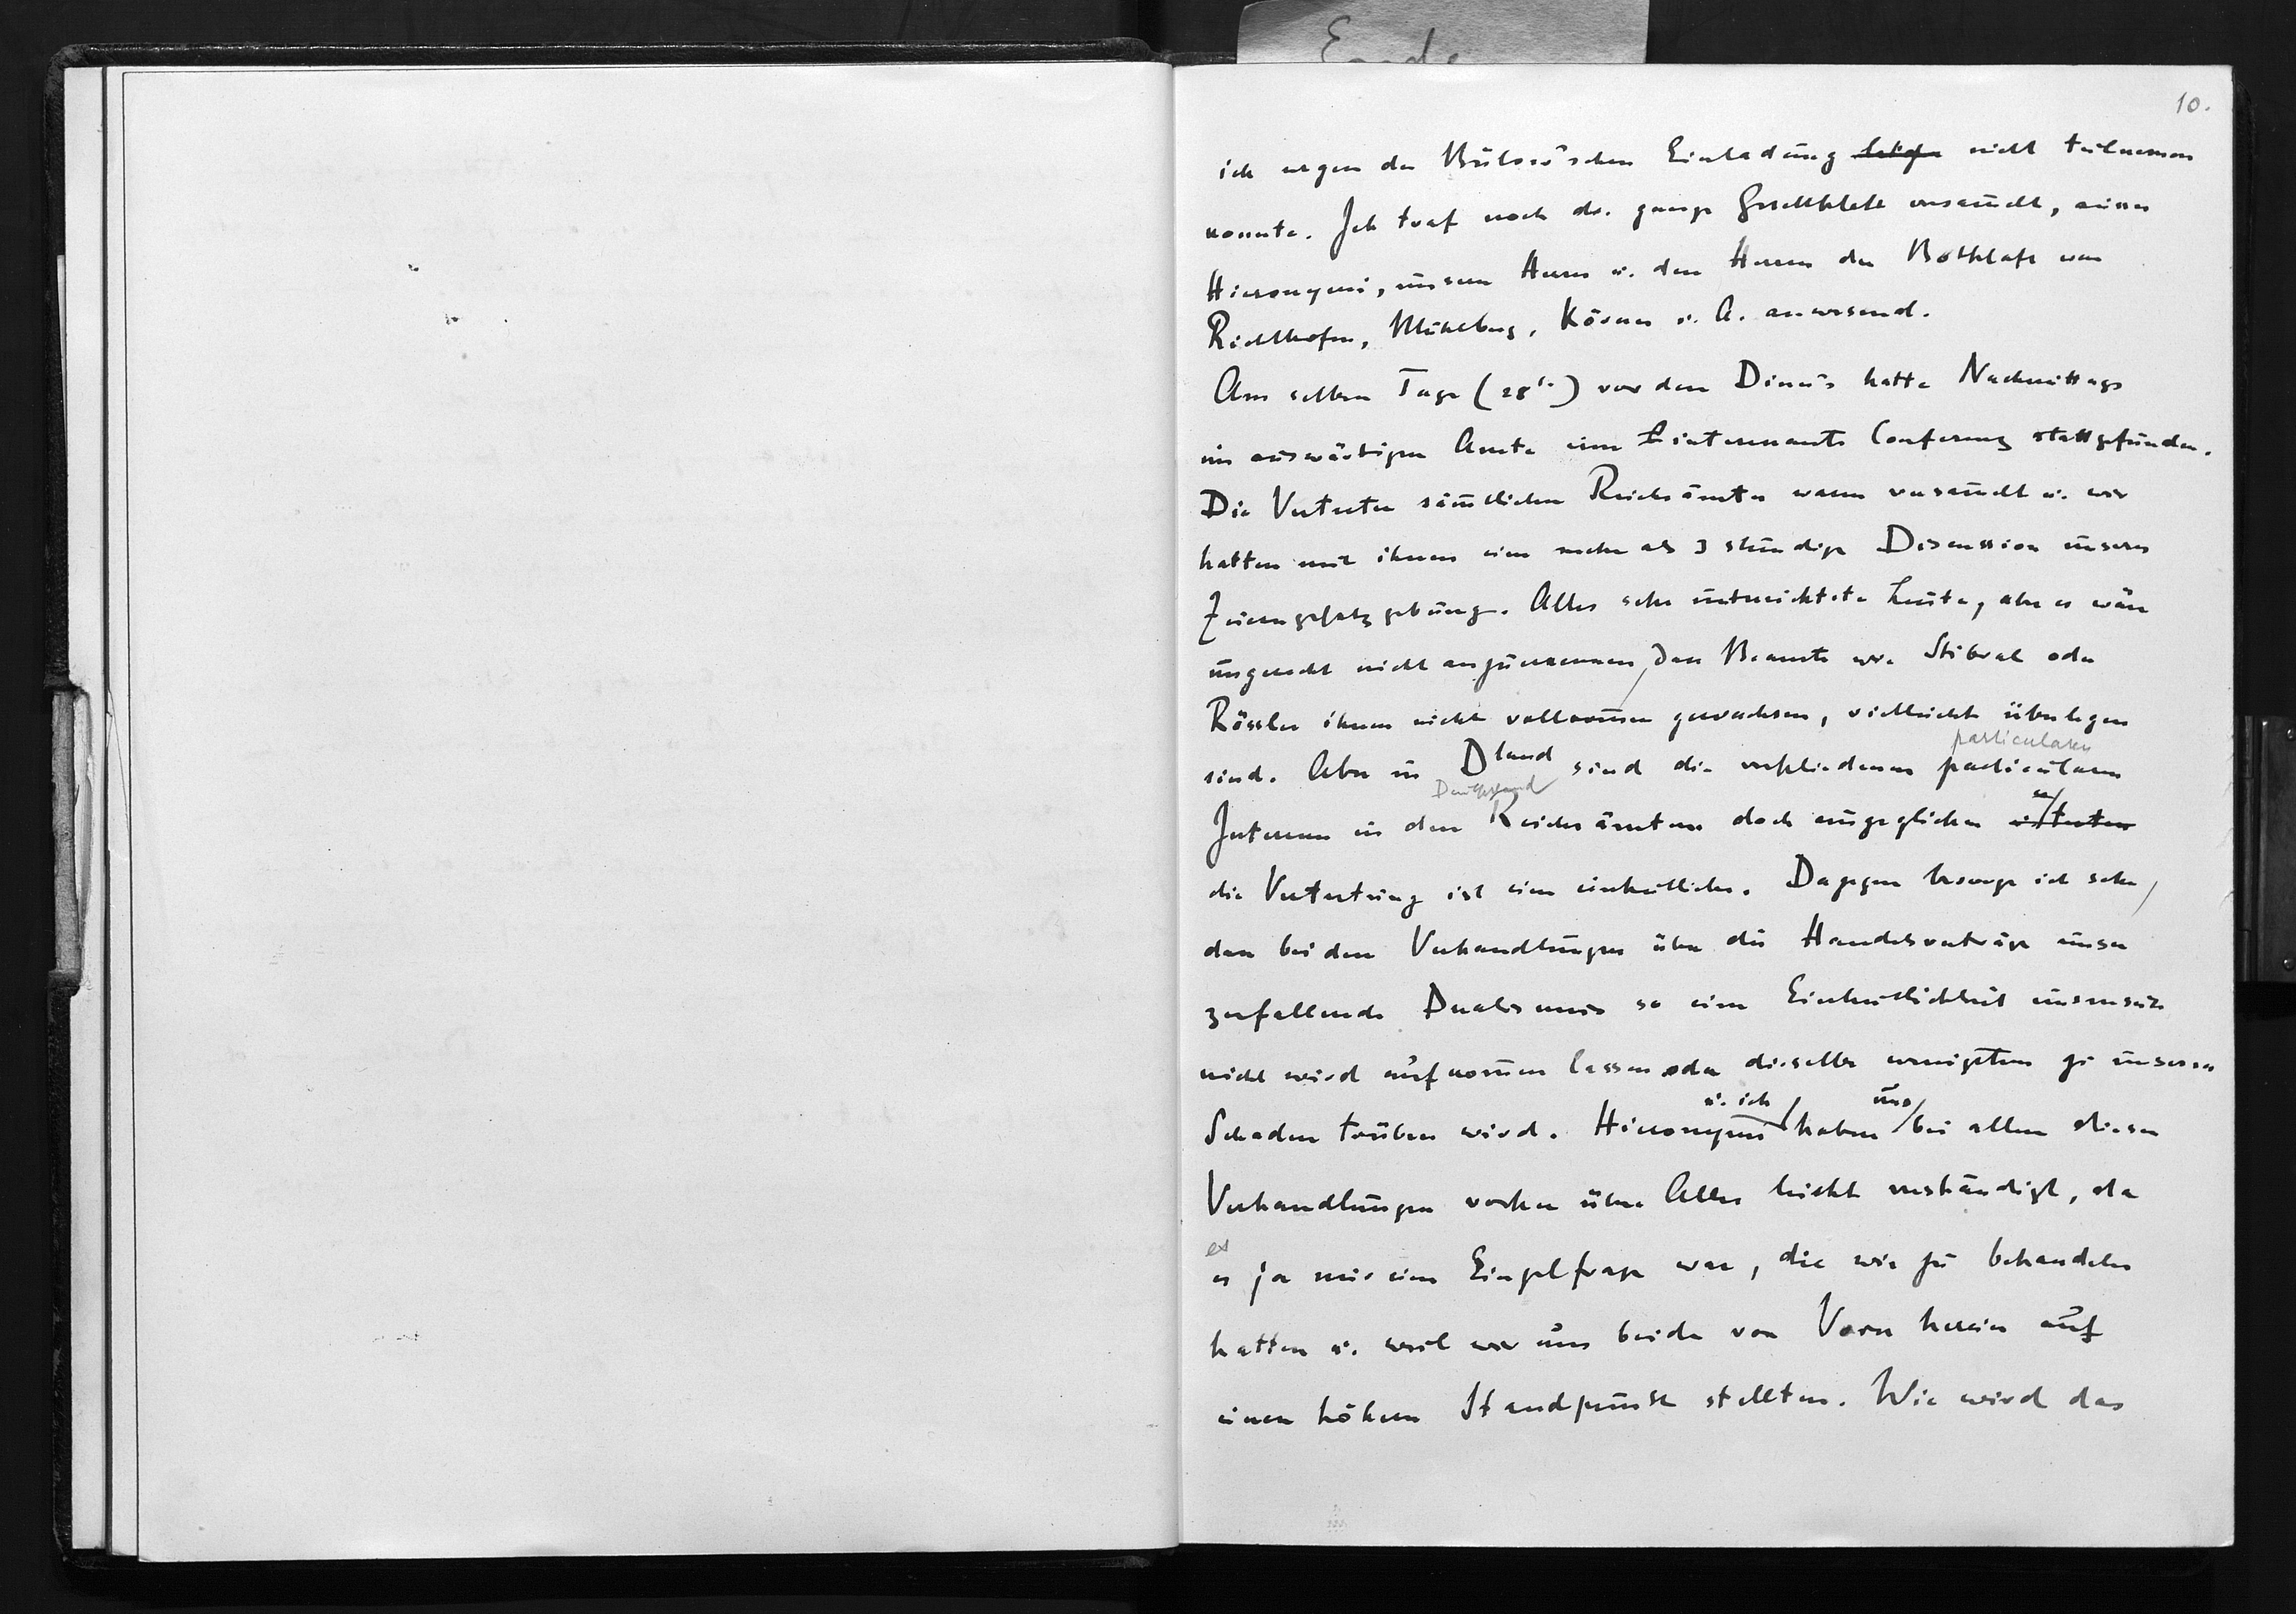 Ende
10.
ich wegen der Bülow'schen Einladung leider nicht teilnemen
konnte. Ich traf noch die ganze Gesellschaft versam̄elt, ausser
Hieronymi, unsern Herrn u. den Herren der Botschaft war
Richthofen, Mühlberg, Körner u. A. anwesend.
Am selben Tage (28t.) vor dem Diner's hatte Nachmittags
im auswärtigen Amte eine interessante Conferenz stattgefunden.
Die Vertreter säm̄tlicher Reichsämter waren versam̄elt u. wir
hatten mit ihnen eine mehr als 3 stündige Discussion unserer
Zuckergesetzgebung. Alles sehr unterrichtete Leute, aber es wäre
ungerecht nicht anzuerkennen, dass Beamte wie Stibral oder
Rössler ihnen nicht vollkom̄en gewachsen, vielleicht überlegen
particularen
sind. Aber in Dland sind die verschiedenen particularen
Deutschland
Interessen in den Reichsämtern doch ausgeglichen u.
die Vertretung ist eine einheitliche. Dagegen besorge ich sehr,
dass bei den Verhandlungen über die Handelsverträge unser
zerfallender Dualismus so eine Einheitlichkeit unserseits
nicht wird aufkom̄en lassen oder dieselbe wenigstens zu unserem
u. ich uns
Schaden trüben wird. Hieronymi haben bei allen diesen
Verhandlungen vorher über Alles leicht verständigt, da
es
es ja nur eine Einzelfrage war, die wir zu behandeln
hatten u. weil wir uns beide von Vorn herein auf
einen höhern Standpunkt stellten. Wie wird das